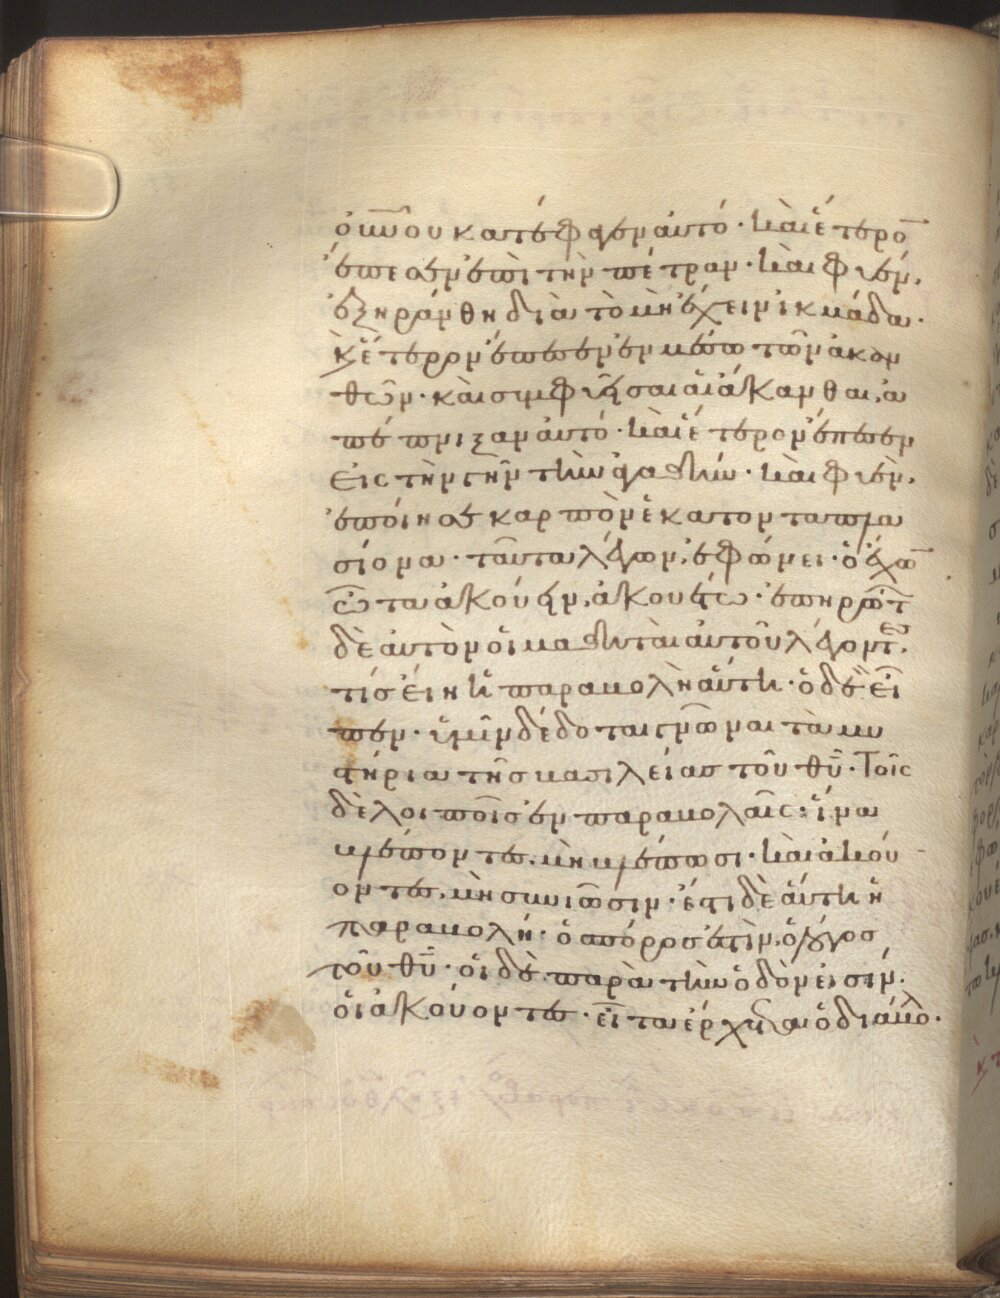 οὐνοῦ κατέφαγεν αὐτό· καὶ ἕτερο̅
ἔπεσεν ἐπὶ τὴν πέτραν· καὶ φυέν,
ἐξηράνθη διὰ τὸ μὴ ἔχειν ἰκμάδα·
κ ἕτερον ἔπεσεν ἐν μέσω τῶν ἀκαν
θῶν· καὶ συμφυεῖσαι αἱ ἄκανθαι, ἀ
πέπνιξαν αὐτό· καὶ ἕτερον ἔπεσεν
εἰς τὴν γῆν τὴν ἀγαθήν· καὶ φυὲν,
ἐποίησε καρπὸν ἑκατονταπλα
σίονα· ταῦτα λέγων, ἐφώνει· ὁ ἔχω̅
ὦτα ἀκούειν, ἀκουέτω· ἐπηρώτ
δὲ αὐτὸν οἱ μαθηταὶ αὐτοῦ λέγοντ
τίς εἴη ἡ παραβολὴ αὕτη· ὁ δὲ εἶ
πεν· ὑμῖν δέδοται γνῶναι τὰ μυ
στήρια τῆς βασιλείας τοῦ θῦ· Τοῖς
δὲ λοιποῖς ἐν παραβολαῖς· ἵνα
βλέποντες, μὴ βλέπωσι· καὶ ἀκού
οντες, μὴ συνιῶσιν· ἔστι δὲ αὕτη ἡ
παραβολή· ὁ σπόρος ἐστὶν, ὁ λόγος
τοῦ θῦ· οἱ δὲ παρὰ τὴν ὁδὸν εἰσίν,
οἱ ἀκούοντες· εἶτα ἔρχεται ὁ διάβολ·